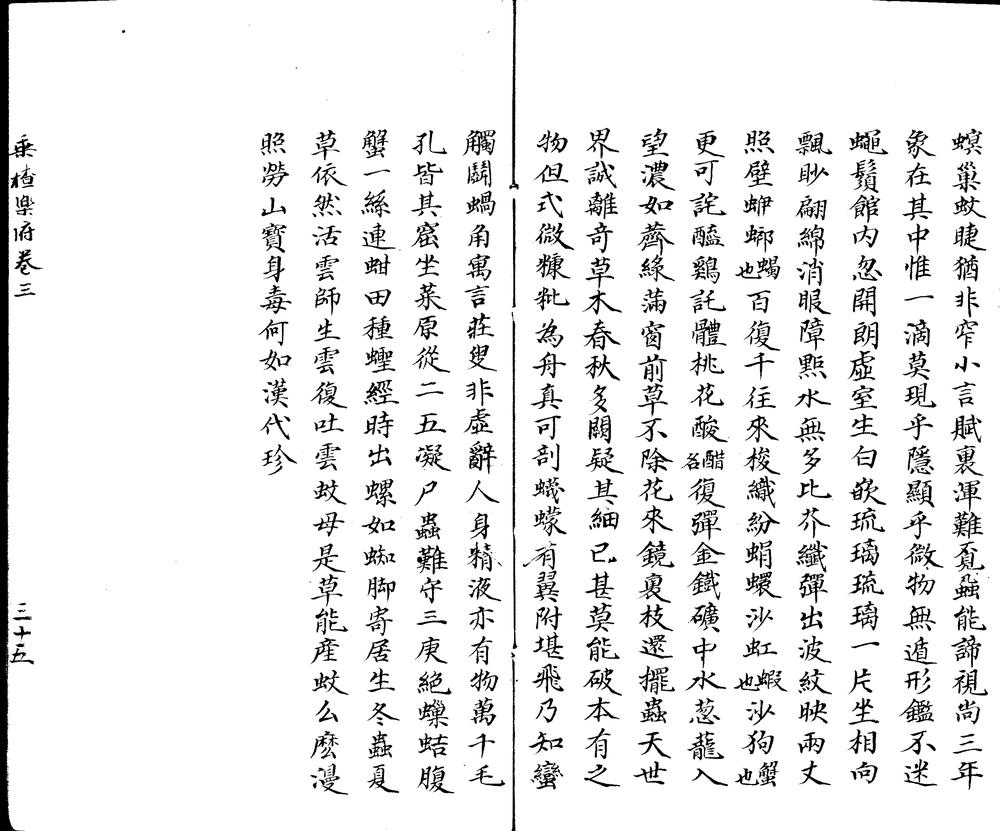 螟巢蚊睫猶非窄小言賦裏渾難覓蝨能諦視尚三年
象在其中惟一滴莫現乎隱顯乎微物無遁形鑑不迷
蠅鬚館内忽開朗虛室生白嵌琉璃琉璃一片坐相向
飄眇翩綿消眼障㸃水無多比芥纖彈出波紋映兩丈
照壁蛜螂蝎也百復千往來梭織紛蜎蠉沙虹蝦也沙狗蟹也
更可詫醯鷄託體桃花酸醋名復彈金鐵礦中水蔥蘢入
望濃如薺綠滿窗前草不除花來鏡裏枝還擺蟲天世
界誠離奇草木春秋多闕疑其細已甚莫能破本有之
物但式微糠粃為舟真可剖蠛蠓有翼附堪飛乃知蠻
觸鬭蝸角寓言莊叟非虛辭人身精液亦有物萬千毛
孔皆其窟坐菜原從二五凝尸蟲難守三庚絕蠌蛣腹
蟹一絲連蚶田種蟶經時出螺如蜘脚寄居生冬蟲夏
草依然活雲師生雲復吐雲蚊母是草能產蚊么麽漫
照勞山寶身毒何如漢代珍
乘槎樂府卷三
三十五